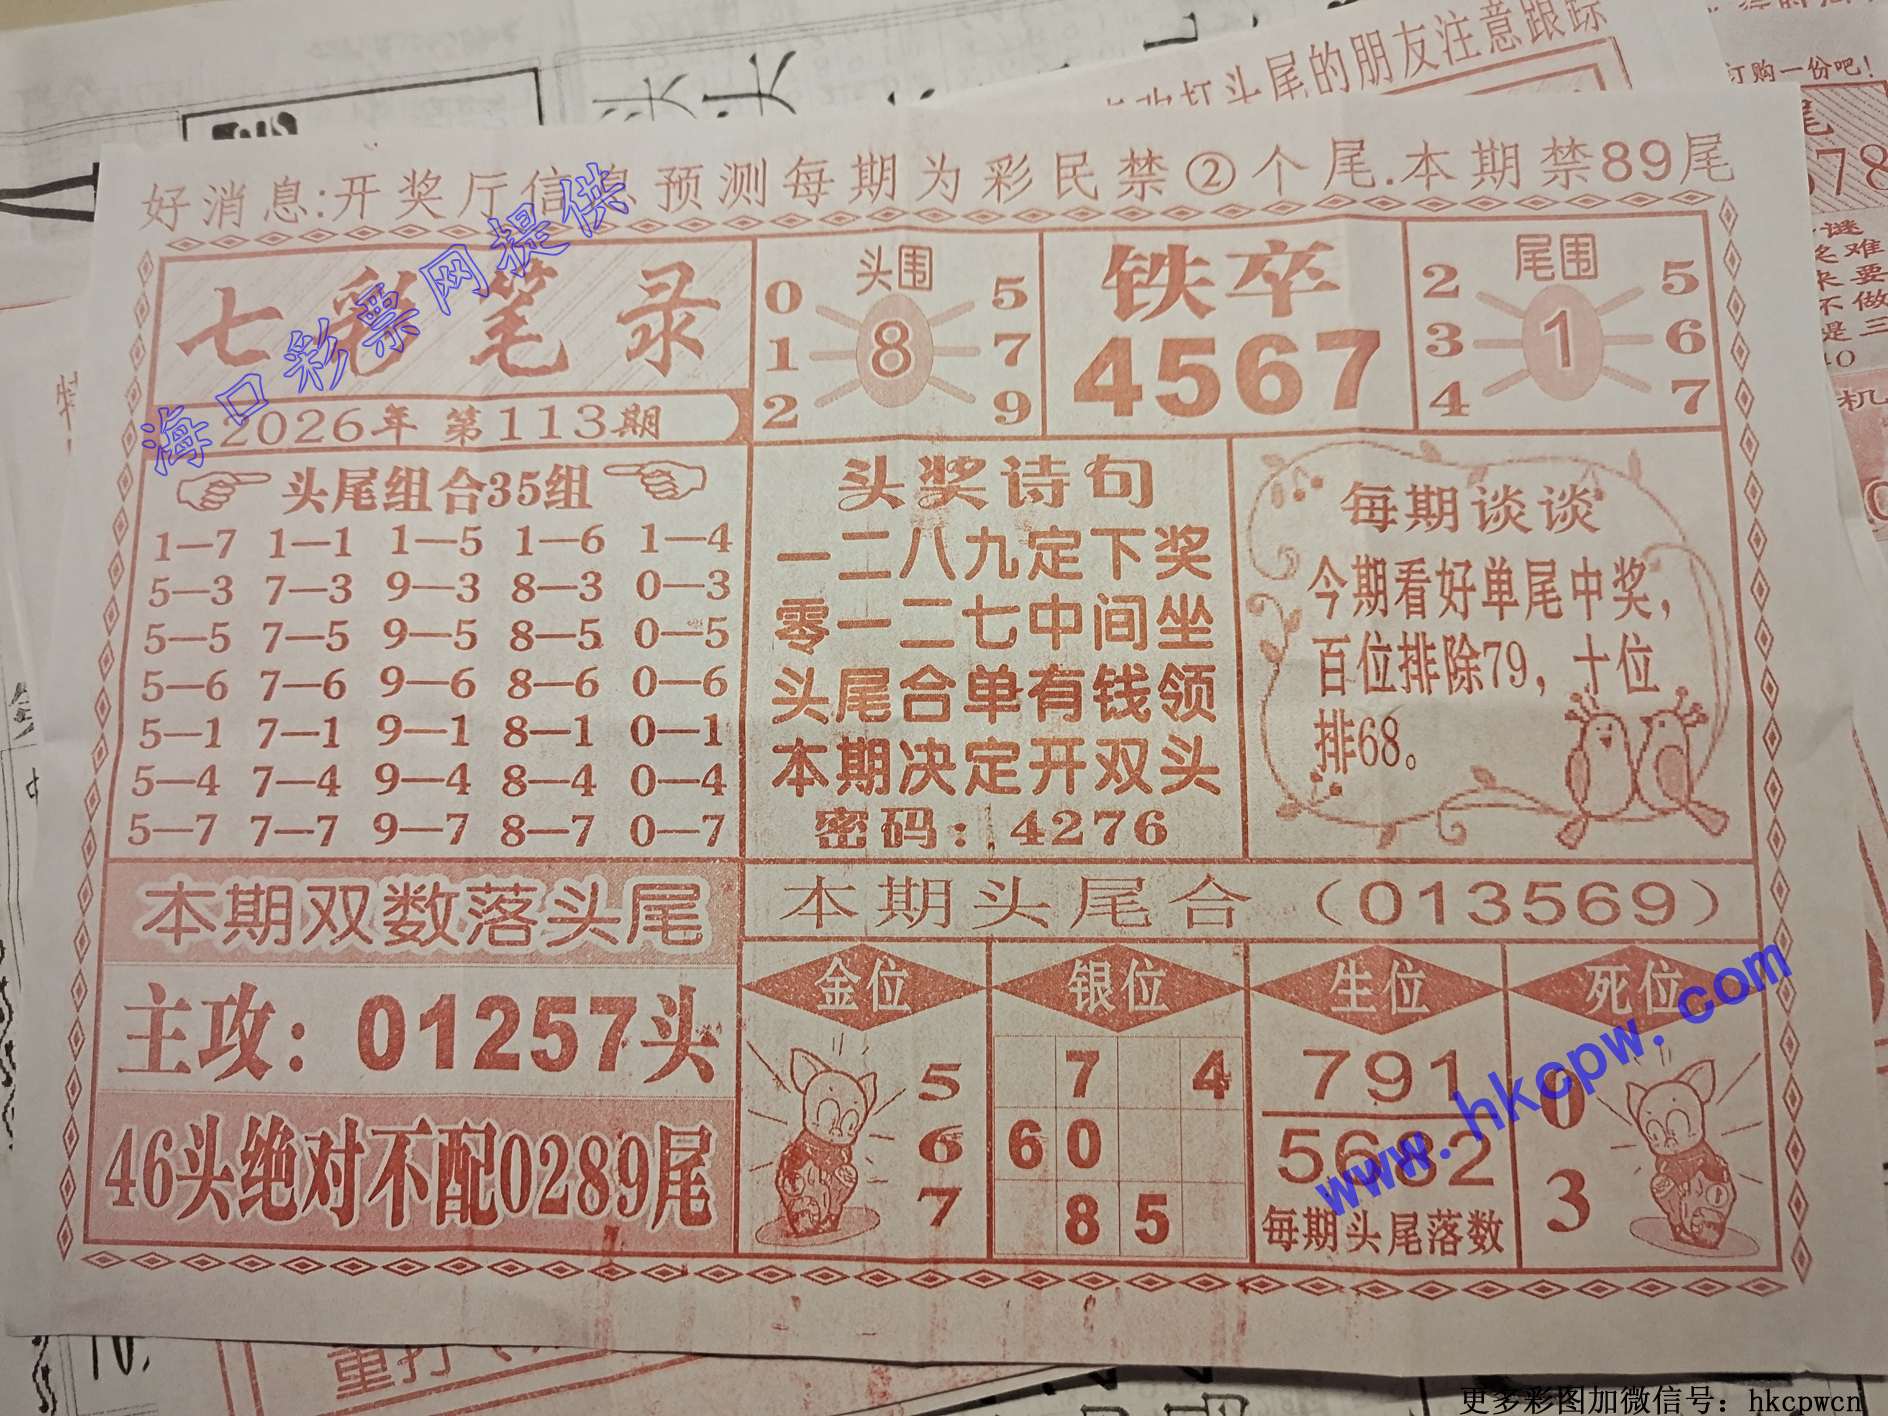 打头尾的朋友注意跟踪
订购一份吧!
好消息:开奖厅信息预测每期为彩民禁②个尾.本期禁89尾
七彩笔录
2026年 第113期
头围
0 5
1 8 7
2 9
铁卒
4567
尾围
2 5
3 1 6
4 7
头尾组合35组
1—7 1—1 1—5 1—6 1—4
5—3 7—3 9—3 8—3 0—3
5—5 7—5 9—5 8—5 0—5
5—6 7—6 9—6 8—6 0—6
5—1 7—1 9—1 8—1 0—1
5—4 7—4 9—4 8—4 0—4
5—7 7—7 9—7 8—7 0—7
头奖诗句
一二八九定下奖
零一二七中间坐
头尾合单有钱领
本期决定开双头
密码：4276
每期谈谈
今期看好单尾中奖，
百位排除79，十位
排68。
本期双数落头尾
主攻：01257头
46头绝对不配0289尾
本期头尾合（013569）
金位
5
6
7
银位
7 4
6 0
8 5
生位
791
5682
每期头尾落数
死位
0
3
海口彩票网提供
www.hkcpw.com
重打
更多彩图加微信号：hkcpwcn